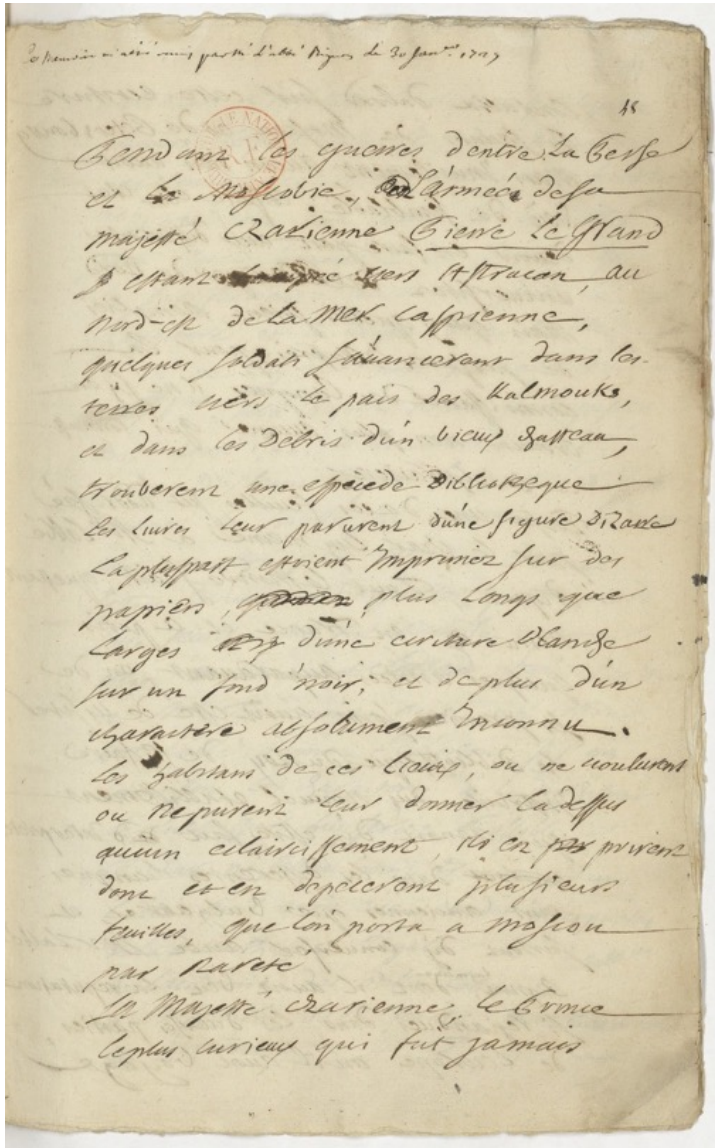 Ce Memoire m'a été remis par Mr l'abbé Bignon le 30 Janv.er
48
Pendant les guerres d'entre La Perse
et la Moscovie, l'armée de sa
majesté czarienne Pierre Le Grand
estant vers Astracan, au
nord-est de La Mer Caspienne,
quelques soldats s'avancerent dans les
terres vers le pais des Kalmouks,
et dans les Debris d'un vieux chasteau,
trouverent une espece de Bibliotheque
Les livres leur parurent d'une figure Bizarre
La pluspart estoient Imprimez sur des
papiers, plus Longs que
Larges d'une ecriture blanche
sur un fond noir; et de plus d'un
charactere absolument Inconnu.
Les habitans de ces lieux, ou ne voulurent
ou ne purent leur donner La dessus
aucun eclaircissement, ils en prirent
donc et en depecerent plusieurs
feuilles, que l'on porta a Moscou
par Rareté
Sa Majesté czarienne, le Prince
le plus curieux qui fut jamais